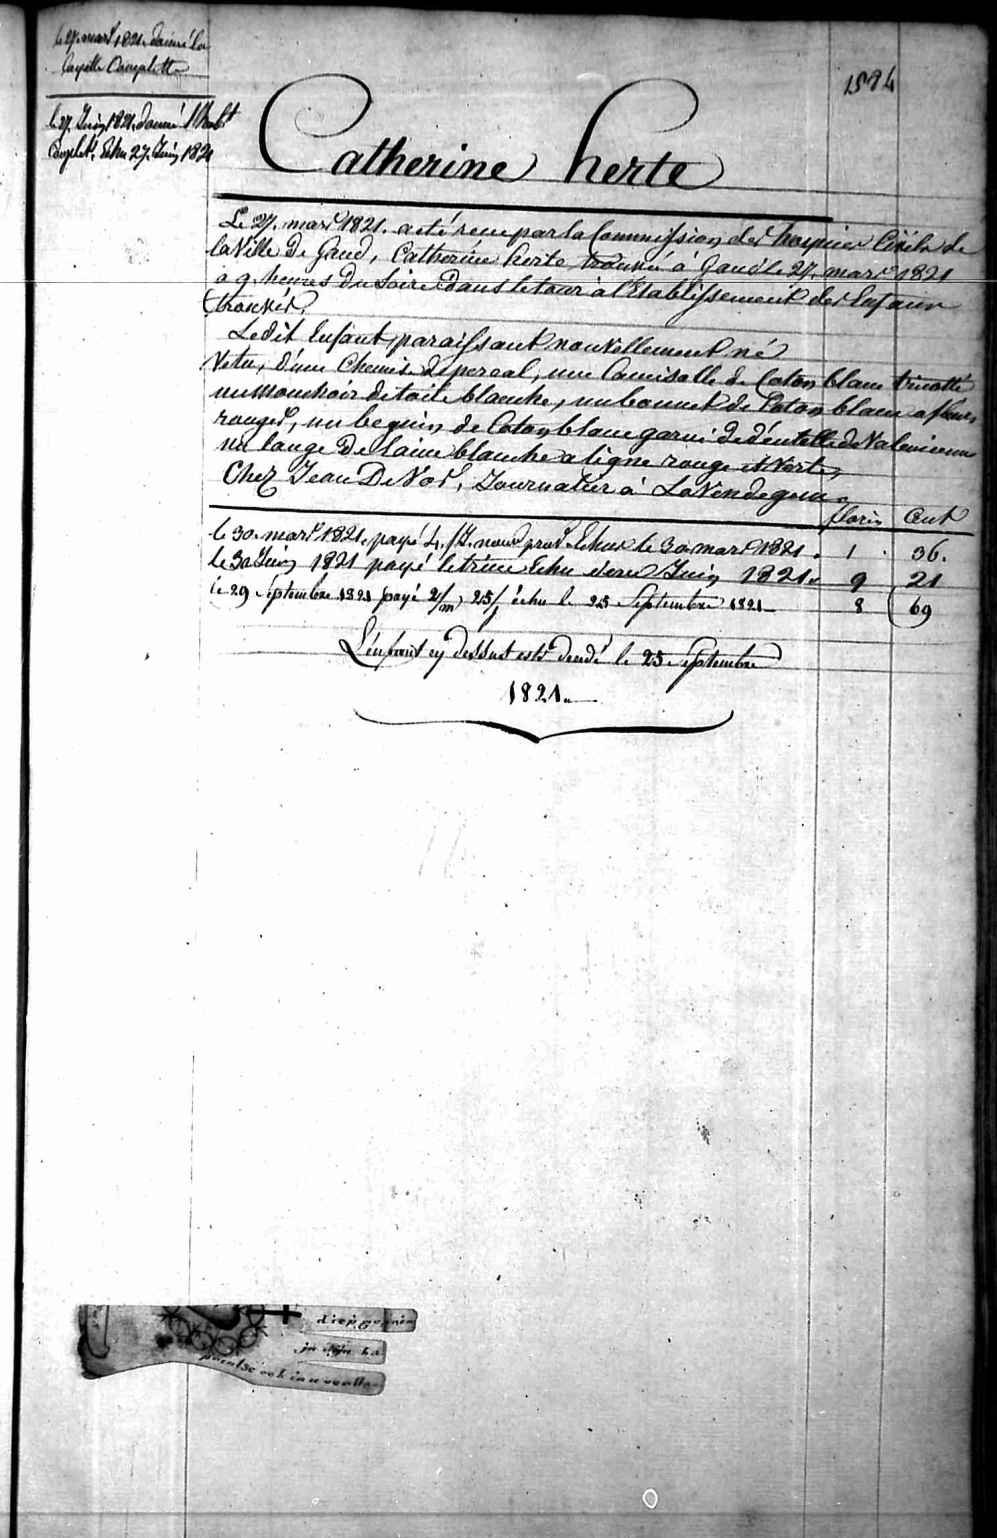 le 27. mars 1821. donné la
layette Complette
le 27. Juin 1821. donné 1 hab.t
Complet. Echu 27. Juin 1821
1584
Catherine herte
Le 27. mars 1821. a été reçu par la Commission des hospices Civils de
la Ville De Gand, Catherine herte trouvée à Gand le 27. mars 1821
a 9. heures du Soire Dans le tour à l'Etablissement des Enfans
trouvés.
Ledit Enfant, paraissant nouvellement né
Vetu, d'une Chemise de percal, une Camisolle de Coton blanc tricotté
un Mouchoir de toile blanche, un bonnet de Coton blanc a fleurs
rouges, un beguin de Coton blanc garni de dentelle de Valencienne
un lange De laine blanche a ligne rouge et Verte,
Chez Jean De Vos, Journalier à Lovendegem
florin Cent
le 30. mars 1821. payé 4. Echus le 30 mars 1821. 1 . 36.
le 30 Juin 1821 payé le trim.e Echu Juin 1821. 9 21
le 29 Septembre 1821 payé 2/m, 25/j échu le 25 Septembre 1821 8 69
L'enfant cy dessus est décédé le 25 Septembre
1821.
diep
in zijn ha